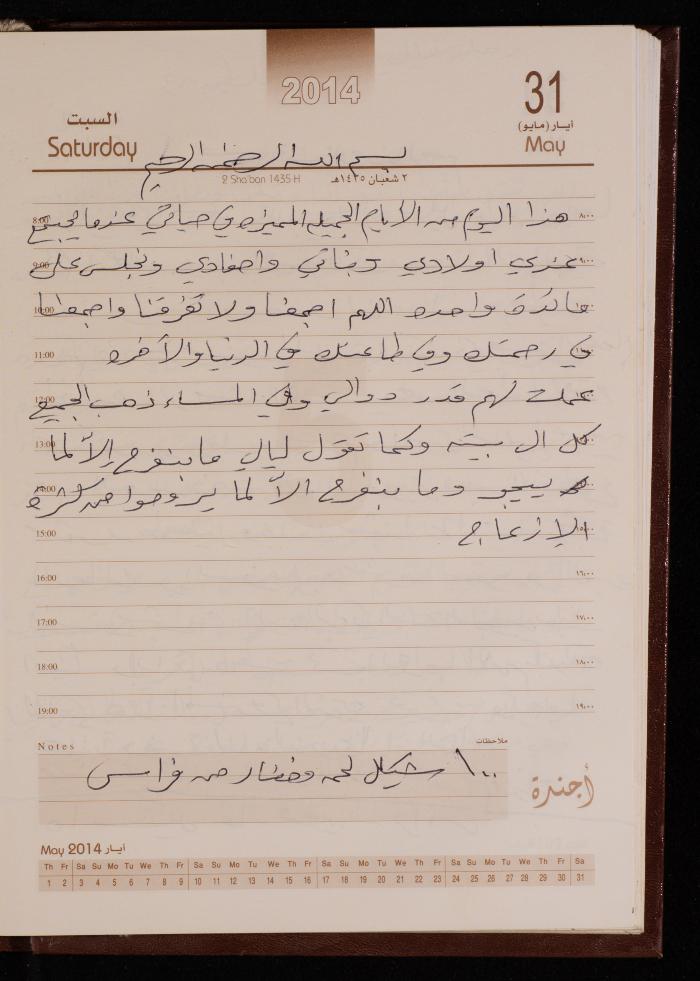 2014
31
أيار (مايو)
May
السبت
Saturday
2 Sha'ban 1435 H
٢ شعبان ١٤٣٥هـ
بسم الله الرحمن الرحيم
8:00 هذا اليوم من الأيام الجميله المميزه في حياتي عندما يجتمع ٨:٠٠
9:00 عندي اولادي وبناتي واحفادي ونجلس على ٩:٠٠
10:00 مائدة واحده اللهم اجمعنا ولا تفرقنا واجمعنا
11:00 في رحمتك وفي طاعتك في الدنيا والآخره
12:00 عملت لهم قدر دوالي وفي المساء ذهب الجميع
13:00 كل ال بيته وكما تقول ليالي ما بنفرح إلا لما
14:00 ييجو وما بنفرح الا لما يروحوا من كثرة
15:00 الازعاج ١٥:٠٠
16:00 ١٦:٠٠
17:00 ١٧:٠٠
18:00 ١٨:٠٠
19:00 ١٩:٠٠
Notes ملاحظات
١٠٠ شيكل لحمه وخضار من فراس
أجندة
May 2014 أيار
Th Fr Sa Su Mo Tu We Th Fr Sa Su Mo Tu We Th Fr Sa Su Mo Tu We Th Fr Sa Su Mo Tu We Th Fr Sa
1 2 3 4 5 6 7 8 9 10 11 12 13 14 15 16 17 18 19 20 21 22 23 24 25 26 27 28 29 30 31